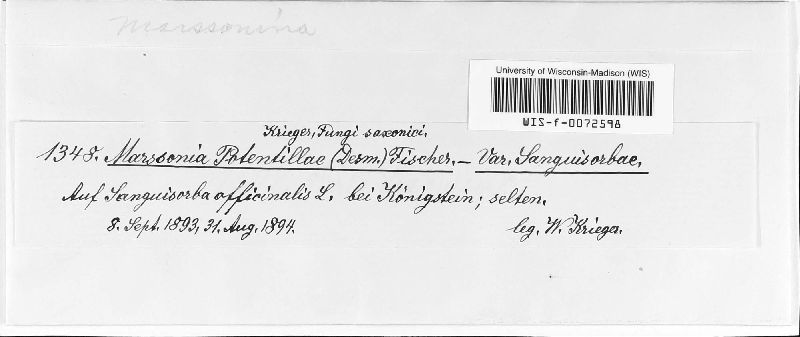 Marssonina
University of Wisconsin-Madison (WIS)
WIS-f-0072598
Krieger, Fungi saxonici.
1348. Marssonia Potentillae (Desm.) Fischer. — Var. Sanguisorbae.
Auf Sanguisorba officinalis L. bei Königstein; selten.
8. Sept. 1893, 31. Aug. 1894. leg. W. Krieger.